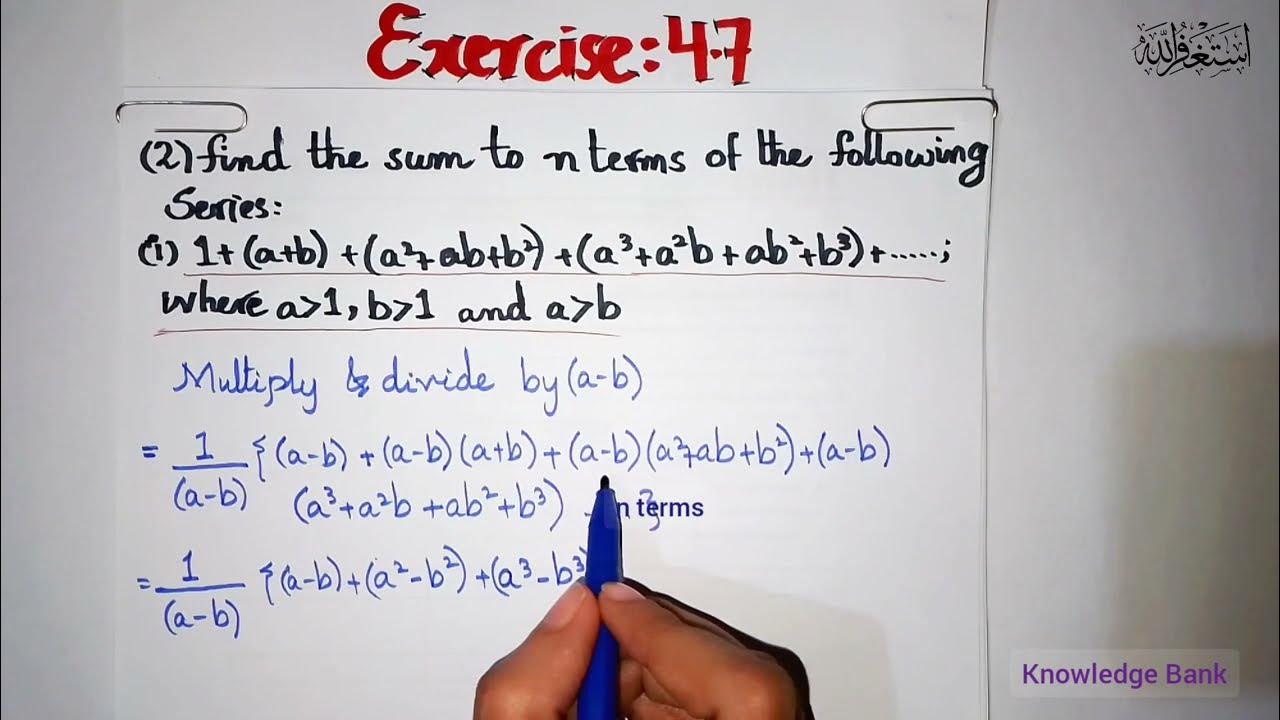 Exercise: 4.7
أستغفر الله
(2) find the sum to n terms of the following
Series:
(i) 1+(a+b)+(a²+ab+b²)+(a³+a²b+ab²+b³)+.....;
where a>1, b>1 and a>b
Multiply & divide by (a-b)
= 1/(a-b) {(a-b)+(a-b)(a+b)+(a-b)(a²+ab+b²)+(a-b)
(a³+a²b+ab²+b³) n terms }
= 1/(a-b) {(a-b)+(a²-b²)+(a³-b³)
Knowledge Bank